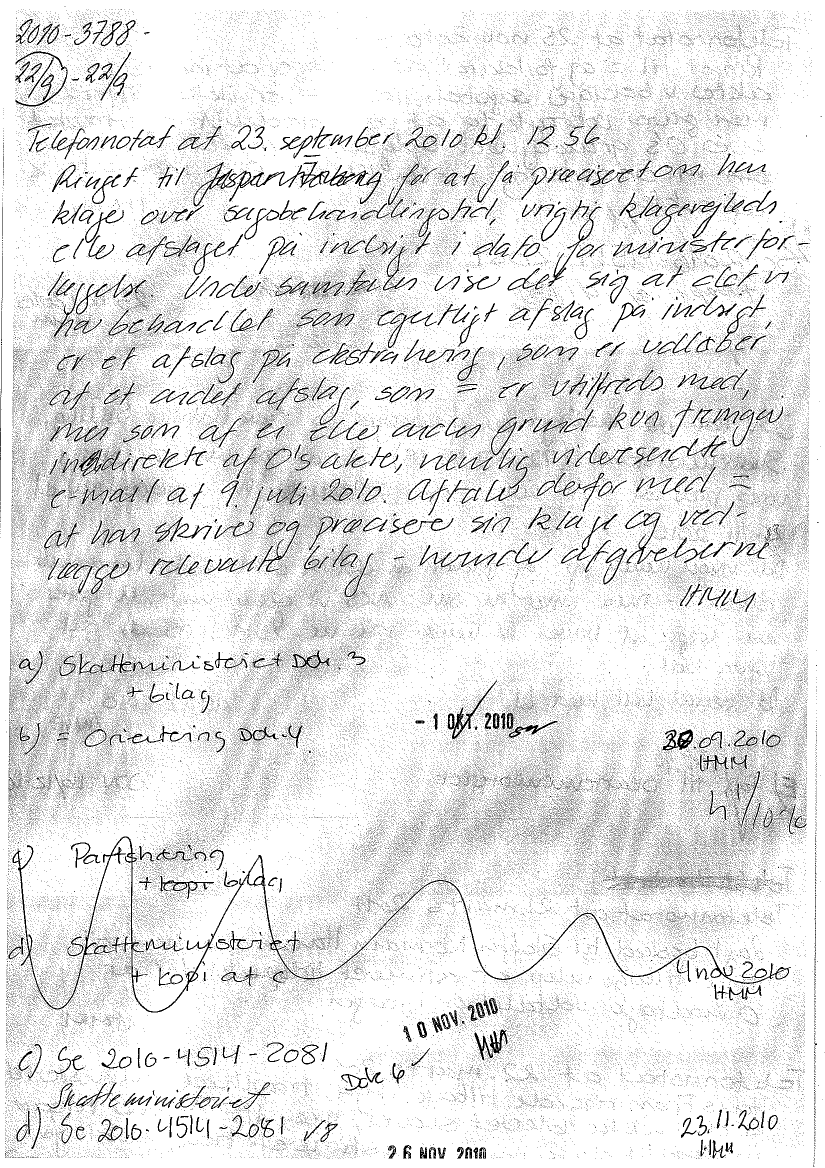 2010-3788-
22/9 - 22/9
Telefonnotat af 23. september 2010 kl. 12.56
Ringet til for at få præciseret om han
klage over sagsbehandlingstid, urigtig klagevejledn
elle afslaget på indsigt i dato for ministerfor-
læggelse. Unde samtalen vise det sig at det vi
ha behandlet som egentligt afslag på indsigt,
er et afslag på ekstrahering, som er udløber
af et andet afslag, som = er utilfreds med,
men som af en elle anden grund kun fremgår
indirekte af O's akte, nemlig videresendte
e-mail af 9. juli 2010. Aftale derfor med =
at han skrive og præcisere sin klage og ved-
lægge relevante bilag - herunde afgørelserne
HMM
a) Skatteministeriet Dok. 3
+ bilag
b) = Orientering Dok. 4
- 1 OKT. 2010
30.09.2010
HMM
c) Partshøring
+ kopi bilag
d) Skatteministeriet
+ kopi af c
4 nov 2010
HMM
10 NOV. 2010
c) Se 2010-4514-2081
Dok 6
Skatteministeriet
d) Se 2010-4514-2081
23.11.2010
HMM
26 NOV. 2010